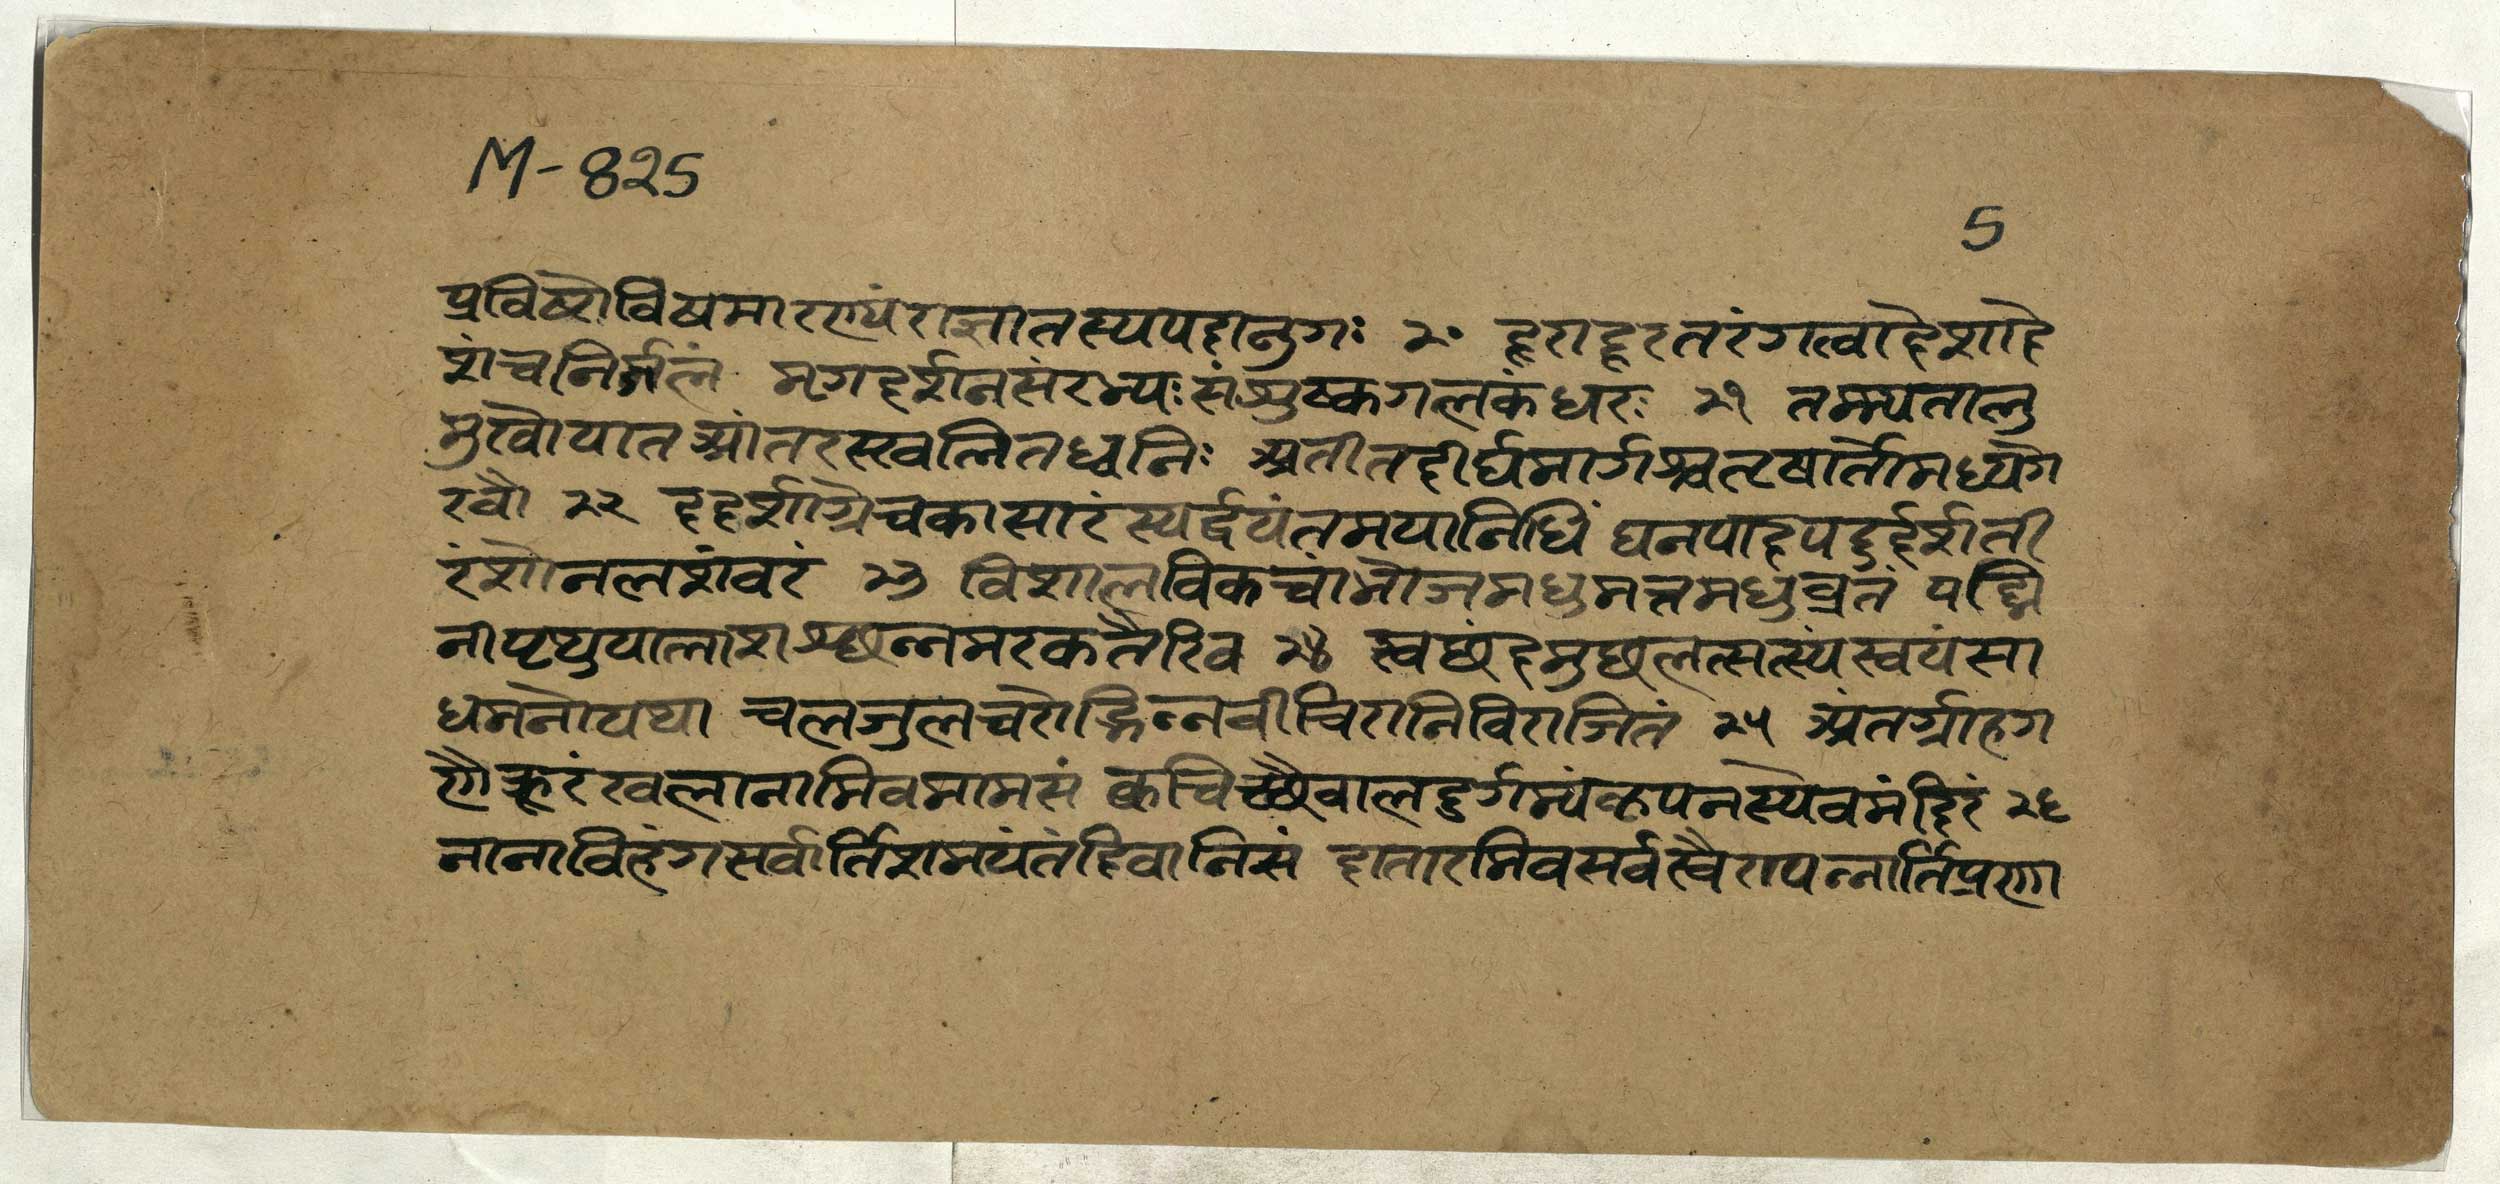 M-825
5
प्रविष्टोविषमारण्यंराजातस्यपदानुगः २० दूराद्दूरतरंगत्वादेशादे
शंचनिर्जलं मृगदर्शनसंरभ्यः संशुष्कगलकंधरः २१ तम्म्यतालु
मुखोयातश्रांतरस्खलितध्वनिः अतीतदीर्घमार्गश्चतृषार्तोमध्यगे
रवौ २२ ददर्शाग्रेचकासारंस्पर्द्वयंतमपानिधिं घनपादपदुर्दर्शती
रंशोनलशंवरं २३ विशालविकचांभोजमधुमत्तमधुव्रतं पद्मि
नीपृथुपालाशश्छन्नमरकतैरिव २४ स्वछंदमुछलत्सत्स्यंस्वयंसा
धमनोयथा चलजुलचरोद्भिन्नवीचिरानिविराजितं २५ अंतर्ग्राहग
णैःक्रूरंखलानामिवमामसं क्वचिच्छैवालदुर्गम्यंकृपनस्येवमंदिरं २६
नानाविहंगसर्वार्तिशमयंतंदिवानिसं दातारमिवसर्वस्वैरापन्नार्तिप्रणा